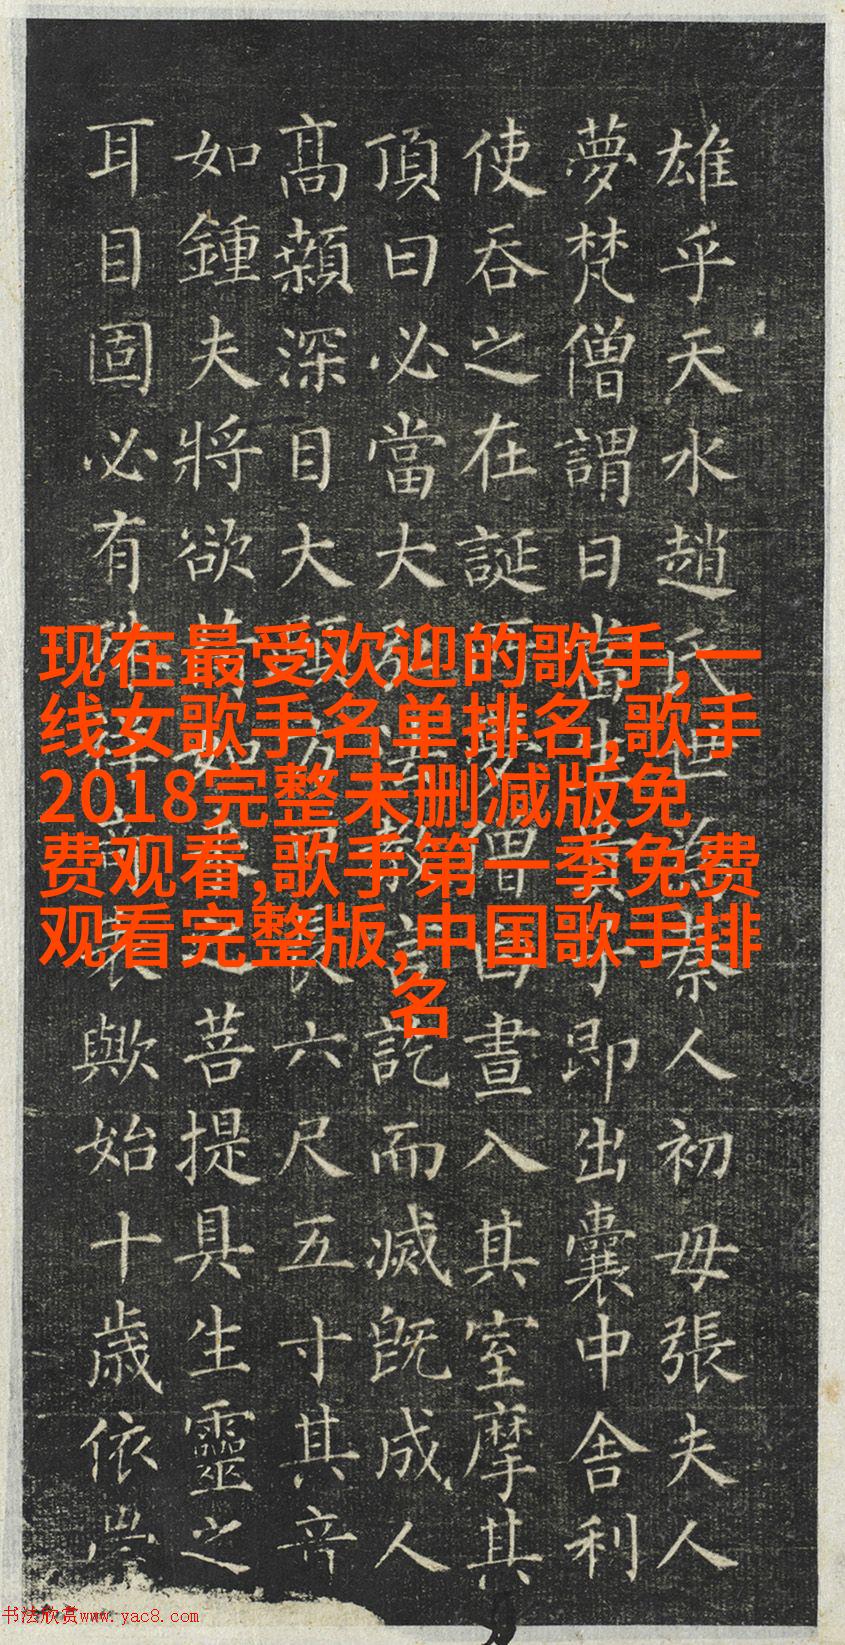 雄乎天水趙氏世為秦人初母張夫人
夢梵僧謂曰當生貴子即出囊中舍利
使吞之在誕所夢僧白晝入其室摩其
頂曰必當大弘法教言訖而滅既成人
高顙深目大頤方口長六尺五寸其音
如鍾夫將欲荷如來之菩提具生靈之
耳目固必有殊祥奇表歟始十歲依
现在最受欢迎的歌手,一
线女歌手名单排名,歌手
2018完整未删减版免
费观看,歌手第一季免费
观看完整版,中国歌手排
名
书法欣赏www.yac8.com